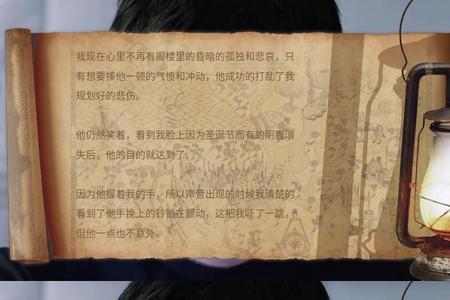 我现在心里不再有阁楼里的昏暗的孤独和悲哀，只
有想要揍他一顿的气愤和冲动，他成功的打乱了我
规划好的悲伤。
他仍然笑着，看到我脸上因为圣诞节而有的阴霾消
失后，他的目的就达到了。
因为他握着我的手，所以声音出现的时候我清楚的
看到了他手挽上的铃铛在颤动，这把我吓了一跳，
但他一点也不意外。